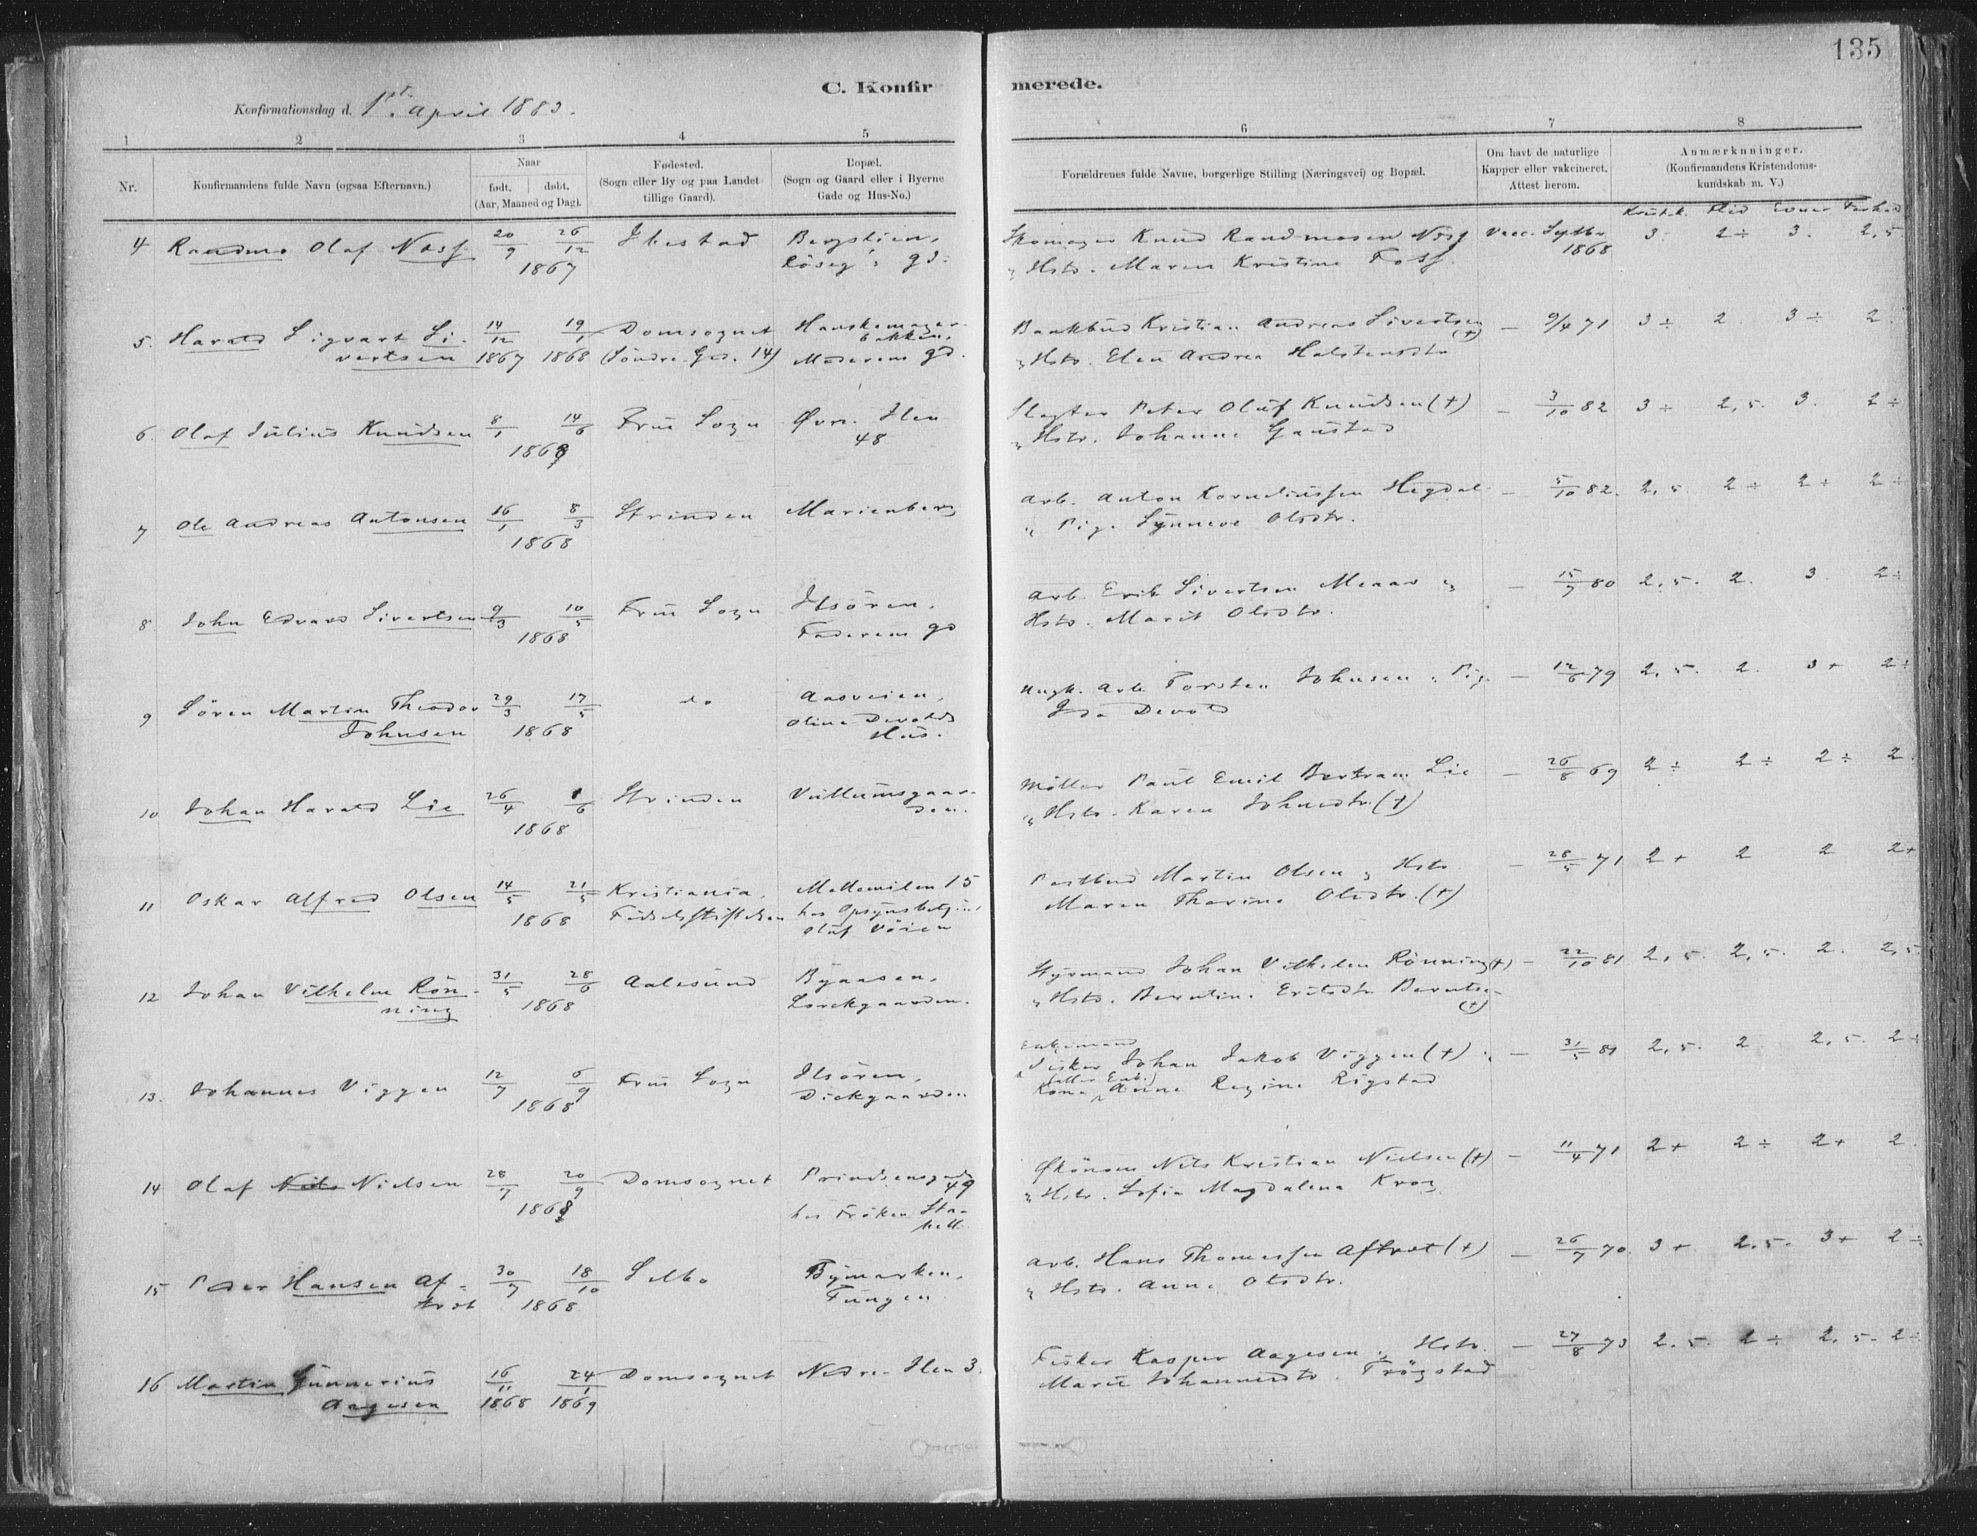 135
C. Konfirmerede.
Konfirmationsdag d. 1st. april 1883.
1 2 3 4 5 6 7 8
Nr.
Konfirmandens fulde Navn (ogsaa Efternavn.)
Naar
født. døbt.
(Aar, Maaned og Dag).
Fødested.
(Sogn eller By og paa Landet
tillige Gaard).
Bopæl.
(Sogn og Gaard eller i Byerne
Gade og Hus-No.)
Forældrenes fulde Navne, borgerlige Stilling (Næringsvei) og Bopæl.
Om havt de naturlige
Kapper eller vakcineret.
Attest herom.
Anmærkninger.
(Konfirmandens Kristendoms-
kundskab m. V.)
Flid Evner Forhold
4 Olaf Næss 20/9 26/12 Ibestad Bergslien, Skomager Knud Randmosen Næss Vacc. Septbr 3. 2÷ 3. 2,5
1867 gd. Hstr. Maren Kristine Foss 1868
5. Harald Sigvart Si- 14/12 19/1 Domsognet Hanskemager- Bankbud Kristian Andreas Sivertsen (+) — 9/4 71 3÷ 2 3÷ 2
bakken,
vertsen 1867 1868 (Søndre Gd. 14) Moderens gd. Hstr. Elen Andrea Halstensdtr
6. Olaf Julius Knudsen 8/1 14/6 Frue Sogn Øvre Ilen Slagter Peter Oluf Knudsen (+) — 3/10 82 3÷ 2,5. 3. 2÷
48 Hstr. Johanne Gaustad
7 Ole Andreas Antonsen 16/1 8/3 Strinden Marienberg Arb. Anton Korneliussen Hegdal — 5/10 82. 2,5. 2÷ 2÷ 2÷
1868 " Pige Synneve Olsdtr.
8. John Edvard Sivertsen 9/3 10/5 Frue Sogn Ilsøren, Arb. Erik Sivertsen — 15/7 80 2,5. 2. 3. 2÷
1868 Faderens gd Hstr. Marit Olsdtr.
9 Søren Martin Theodor 29/3 17/5 do Aasveien, Ungk. Arb. Torsten Johnsen Pig. — 12/6 79 2,5. 2. 3+ 2÷
Johnsen 1868 Oline Devolds Ida Devold
Hus.
10 Johan Harald Lie 26/4 1/6 Strinden Vullumsgaar- Møller Paul Emil Bertram Lie — 26/8 69 2÷ 2÷ 2÷ 2
1868 den. " Hstr. Karen Johnsdtr. (+)
11 Oskar Alfred Olsen 14/5 21/5 Kristiania. Mellemilen 15 Postbud Martin Olsen Hstr. — 28/5 71 2+ 2 2 2+
1868 Fødselsstiftelsen hos Opsynsbetj. Maren Thorine Olsdtr. (+)
Oluf Vøien
12 Johan Vilhelm Røn- 31/5 28/6 Aalesund Byaasen, Styrmand Johan Vilhelm Rønning (+) — 22/10 81 2,5. 2,5. 2. 2,5
ning 1868 Lorckgaarden. " Hstr. Berntine (+)
13. Johannes Viggen 12/7 6/9 Frue Sogn Ilsøren, Enkemand Fisker Johan Jakob Viggen (+) — 31/5 2,5. 2 2,5. 2÷
1868 Dickgaarden Kone Anne Regine Rigstad
14 Olaf Nils Nielsen 28/7 20/9 Domsognet Prindsensgade Økonom Nils Kristian Nielsen (+) — 11/4 71 2+ 2÷ 2+ 2.
49
hos Frøken Sta- Hstr. Sofia Magdalena Krog
bell
15 Peder Hansen Af- 30/7 18/10 Selbo Bymarken, Arb. Hans Thomassen Aftret (+) — 26/7 70. 3+ 2,5. 3+ 2÷
tret 1868 Fungen. Hstr. Anne Olsdtr.
16 Martin Gunnerius 16/11 24/1 Domsognet Nedre Ilen 3. Fisker Kasper Aagesen Hstr. — 27/8 73 2,5. 2÷ 2,5. 2÷
Aagesen 1868 1869 Marie Johannesdtr. Trøgstad